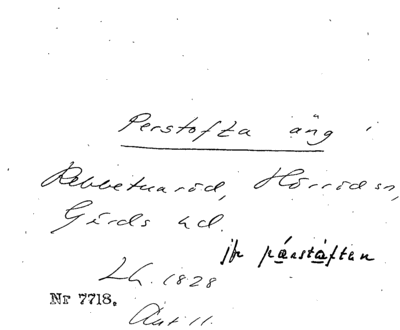 Perstofta äng i
Rebbetuaröd, Hörröd sn,
Gärds hd.
jfr pá̱rstá̱ften
Lh. 1828
Nr 7718.
Akt 11.